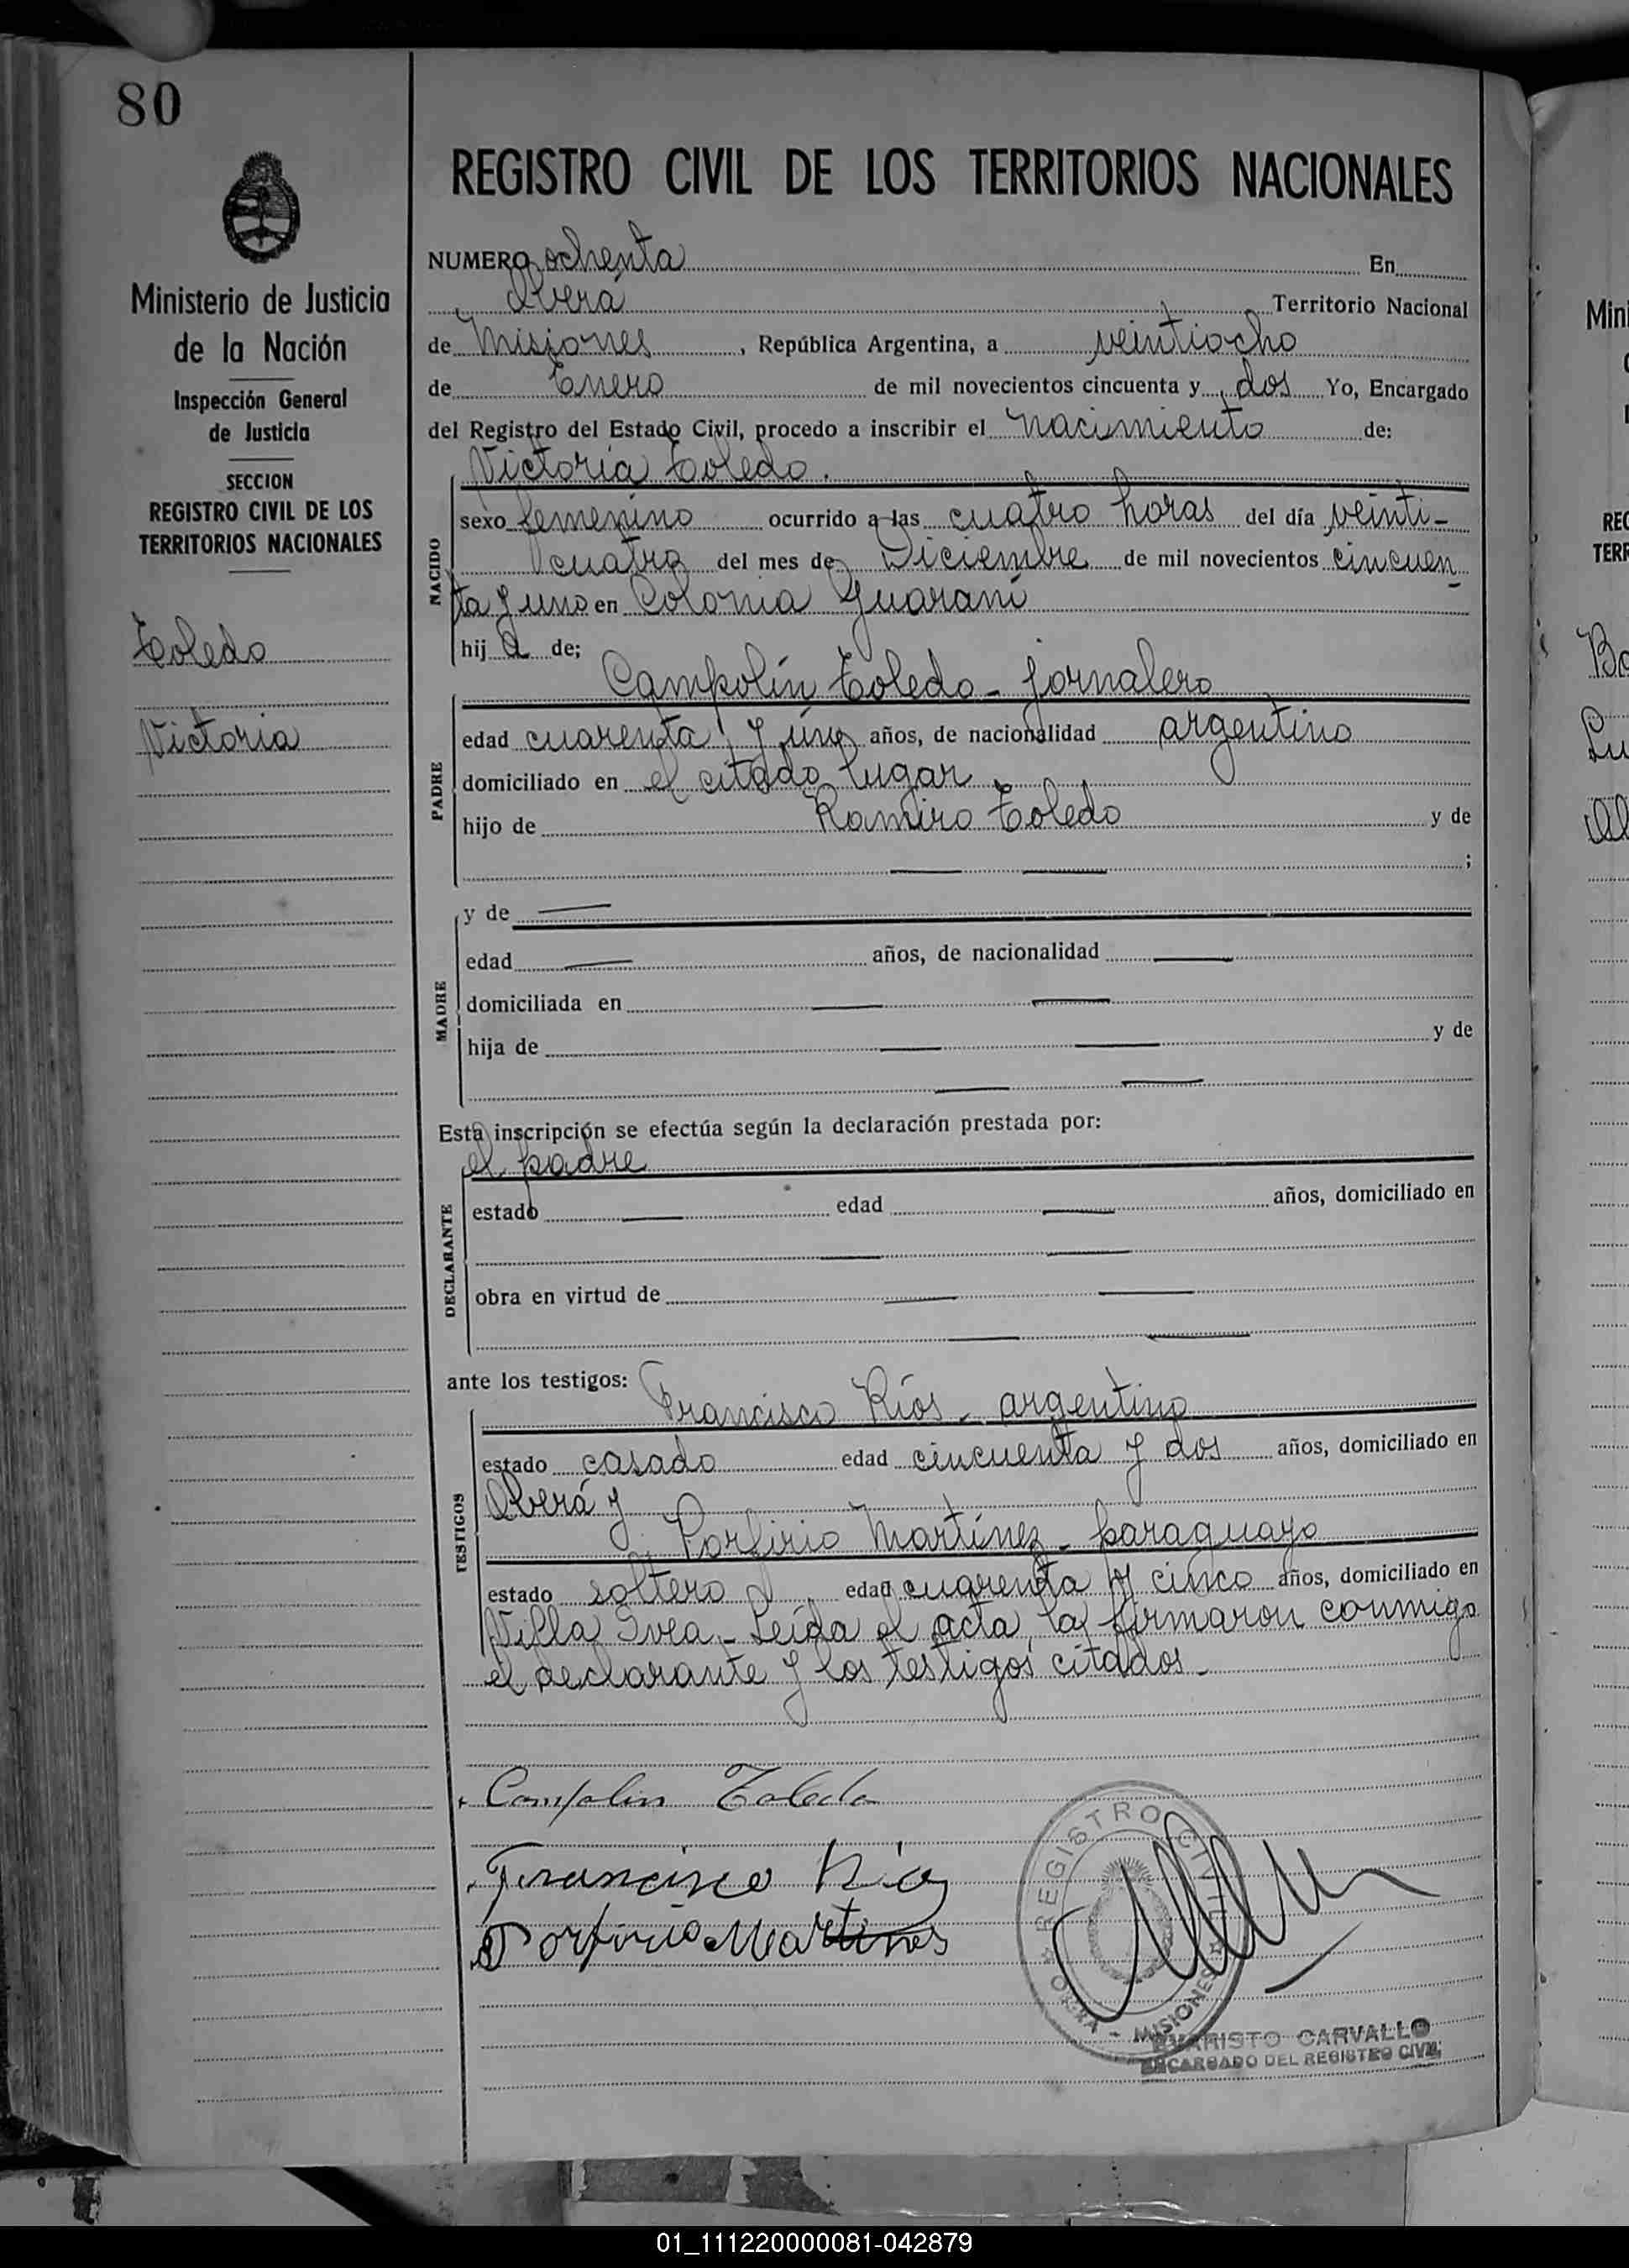 80
REGISTRO CIVIL DE LOS TERRITORIOS NACIONALES
Ministerio de Justicia
de la Nación
Inspección General
de Justicia
SECCION
REGISTRO CIVIL DE LOS
TERRITORIOS NACIONALES
Toledo
Victoria
NUMERO ochenta En
Oberá Territorio Nacional
de Misiones, República Argentina, a veintiocho
de Enero de mil novecientos cincuenta y dos Yo, Encargado
del Registro del Estado Civil, procedo a inscribir el nacimiento de:
Victoria Toledo.
NACIDO
sexo femenino ocurrido a las cuatro horas del día veinti-
cuatro del mes de Diciembre de mil novecientos cincuen-
ta y uno en Colonia Guaraní
hij a de;
Campolín Toledo - jornalero
PADRE
edad cuarenta y un años, de nacionalidad argentino
domiciliado en el citado lugar
hijo de Ramiro Toledo y de
;
MADRE
y de
edad años, de nacionalidad
domiciliada en
hija de y de
Esta inscripción se efectúa según la declaración prestada por:
el padre
DECLARANTE
estado edad años, domiciliado en
obra en virtud de
ante los testigos: Francisco Ríos - argentino
TESTIGOS
estado casado edad cincuenta y dos años, domiciliado en
Oberá y
Porfirio Martínez - paraguayo
estado soltero edad cuarenta y cinco años, domiciliado en
Villa Svea. - Leída el acta, la firmaron conmigo
el declarante y los testigos citados. -
Campolin Toledo
Francisco Rios
Porfirio Martines
REGISTRO CIVIL
OBERA - MISIONES
EVARISTO CARVALLO
ENCARGADO DEL REGISTRO CIVIL
Mini
REG
TERR
01_111220000081-042879